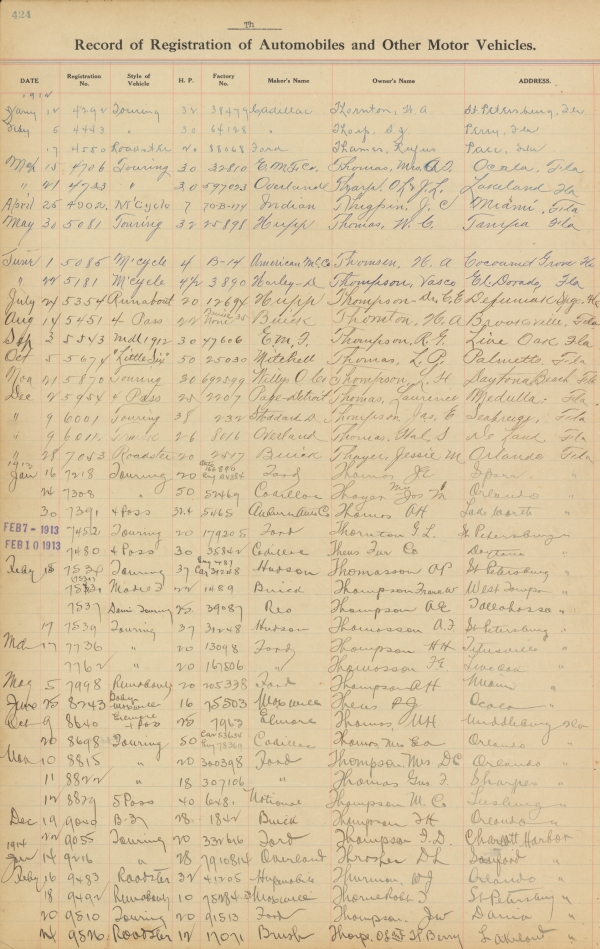 424
Th
Record of Registration of Automobiles and Other Motor Vehicles.
DATE Registration No. Style of Vehicle H. P. Factory No. Maker's Name Owner's Name ADDRESS.
1912
12 4292 Touring 32 38479 Cadillac Thornton, W. A. St Petersburg, Fla
Feby 5 4443 " 30 64128 " Tharp, Perry, Fla
17 4580 Roadster 20 88068 Ford Thames, Rufus Pace, Fla
Mch 15 4706 Touring 30 32810 E.M.F. Co. Thomas, Mrs A. S. Ocala, Fla
" 21 4733 " 30 597023 Overland Tharp, Lakeland Fla
April 25 4902 M'Cycle 7 70B-174 Indian Thigpin, J. C Miami, Fla
May 30 5081 Touring 32 25898 Hupp Thomas, W. C. Tampa Fla
June 1 5085 M'cycle 4 B-14 American M. Co Thomsen, H. A Cocoanut Grove Fla
" 22 5181 M'cycle 4½ 3890 Harley-D Thompson, Vasco El Dorado, Fla
July 24 5354 Runabout 20 12694 Hupp Thompson-Dr, C. E Defuniak Spgs. Fla
Aug 14 5451 4 Pass 22 Buick Thornton, H. A Brooksville, Fla
Sep 3 5543 Mdl 1912 30 47606 E. M. F. Thompson, R. G. Live Oak Fla
Oct 5 5674 "Little Six" 50 25030 Mitchell Thomas, L. P. Palmetto, Fla
Nov 21 5870 Touring 30 Willys O. Co Thompson, H Daytona Beach, Fla
Dec 2 5954 4 Pass 25 2207 Pope-Detroit Thomas, Laurence Medulla Fla
" 9 6001 Touring 38 232 Stoddard D. Thompson Jas, E Seabreeze, Fla
" 9 6011 26 5016 Overland Thomas, Hal S De Land Fla
" 28 7043 Roadster 20 2417 Buick Thayer, Jessie M Orlando Fla
1913
Jan 16 7218 Touring 20 Ford Thomas J E
24 7308 " 50 52469 Cadillac Thayer Mrs Jos M Orlando "
30 7391 4 Pass 32.4 5465 Auburn Auto Co Thomas A H Lake Worth "
FEB 7 - 1913 7452 Touring 20 179205 Ford Thornton G L. St Petersburg "
FEB 10 1913 7480 4 Pass 30 35842 Cadillac Theus Fur Co Daytona "
Feby 18 7534 Touring 37 Car 31248 Hudson Thomasson A P St Petersburg "
Model 22 1489 Buick Thompson Frank W West Tampa "
7537 Demi Touring 25 39087 Reo Thompson A E Tallahassee "
17 7539 Touring 37 31248 Hudson Thomasson A. F. St Petersburg "
Mch 17 7736 " 20 13098 Ford Thompson H H Titusville "
7762 " 20 167806 " Thomasson F E. Live Oak "
May 5 7998 Runabout 20 205338 Ford Thompson A H Miami "
June 25 8243 Baby Maxwell 16 75503 Maxwell Theus P J Ocala "
Oct 9 8640 Elmore 4 Pass 25 7963 Elmore Thomas, M H Middleburg Fla
20 8698 Touring 50 Car 53650 Eng 78369 Cadillac Thomas Mrs Orlando "
Nov 10 8815 " 20 300398 Ford Thompson Mrs D C Orlando "
11 8822 " 18 307106 " Thomas Gus F. Sharpes "
12 8829 5 Pass 40 6481 National Thompson M. Co Leesburg "
Dec 19 9040 B-37 28 1842 Buick Thompson F H Orlando "
22 9055 Touring 20 332616 Ford Thompson F. D. Charlott Harbor
1914
Jan 14 9216 " 28 7910814 Overland Thrasher D L Sanford "
Feby 16 9483 Roadster 32 41205 Hupmobile Thurman W J Orlando "
18 9492 Runabout 10 Maxwell St Petersburg "
20 9510 Touring 20 91513 Ford Thompson, J W Dania "
24 9526 Roadster 12 17071 Brush Thorp Of St St Berry Lakeland "